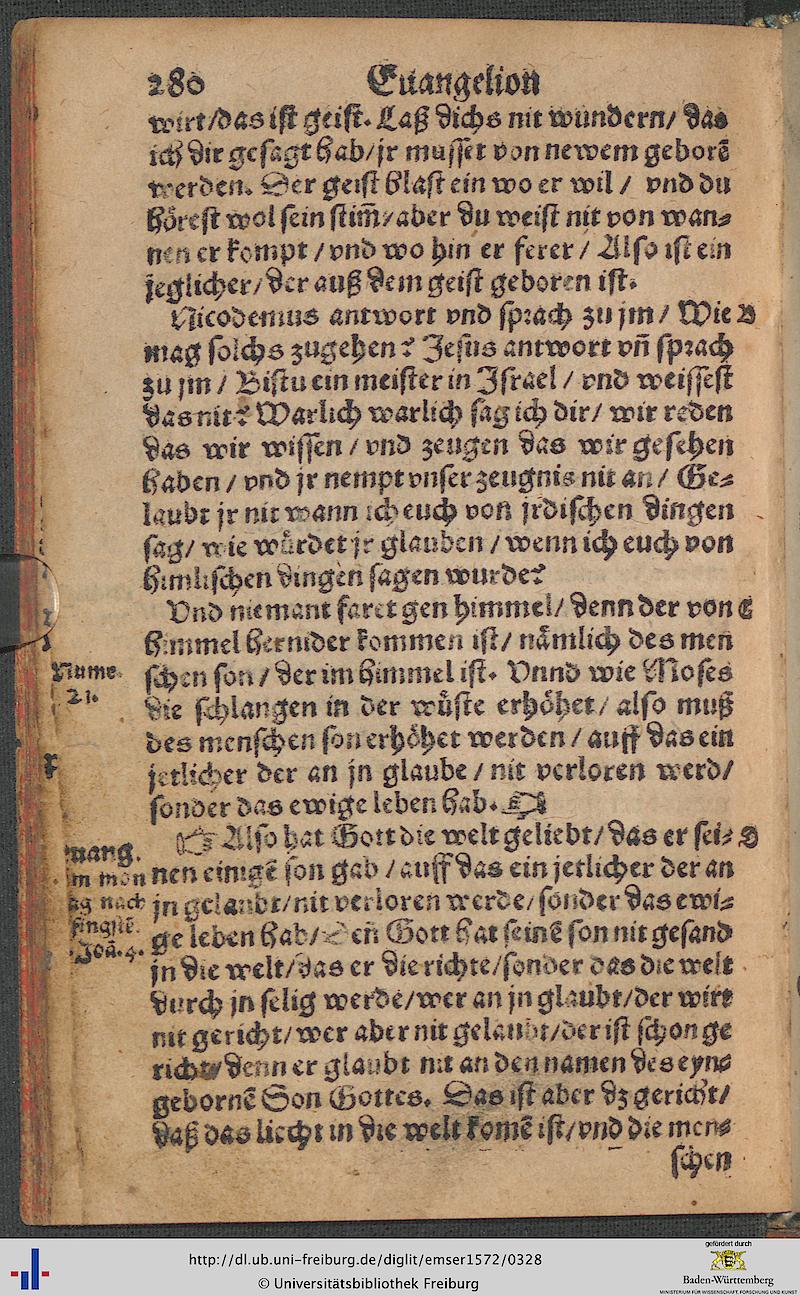 280 Euangelion
wirt/das ist geist. Laß dichs nit wundern/ das
ich dir gesagt hab/jr musset von newem geborē
werden. Der geist blast ein wo er wil / vnd du
hörest wol sein stim̄/aber du weist nit von wan⸗
nen er kompt /vnd wo hin er ferer / Also ist ein
jeglicher/der auß dem geist geboren ist.
Nicodemus antwort vnd sprach zu jm/ Wie B
mag solchs zugehen? Jesus antwort vn̄ sprach
zu jm / Bistu ein meister in Israel / vnd weissest
das nit? Warlich warlich sag ich dir/ wir reden
das wir wissen / vnd zeugen das wir gesehen
haben / vnd jr nempt vnser zeugnis nit an/ Ge⸗
laubt jr nit wann ich euch von jrdischen dingen
sag/ wie würdet jr glauben / wenn ich euch von
himlischen dingen sagen wurde?
Vnd niemant faret gen himmel/ denn der von C
himmel hernider kommen ist/ nämlich des men
schen son / der im himmel ist. Vnnd wie Moses
Nume.
21.
die schlangen in der wüste erhöhet/ also muß
des menschen son erhöhet werden / auff das ein
jetlicher der an jn glaube / nit verloren werd/
sonder das ewige leben hab. ☜
☞ Also hat Gott die welt geliebt/das er sei⸗ D
nen einigē son gab /auff das ein jetlicher der an
jn gelaubt/nit verloren werde/sonder das ewi⸗
ge leben hab/Den̄ Gott hat seinē son nit gesand
uang.
m mon
ag nach
fingstē.
Joā.4.
jn die welt/das er die richte/sonder das die welt
durch jn selig werde/wer an jn glaubt/der wirt
nit gericht/wer aber nit gelaubt/der ist schon ge
richt/denn er glaubt nit an den namen des eyn⸗
gebornē Son Gottes. Das ist aber dz gericht/
daß das liecht in die welt komē ist/vnd die men⸗
schen
http://dl.ub.uni-freiburg.de/diglit/emser1572/0328
© Universitätsbibliothek Freiburg
gefördert durch
Baden-Württemberg
MINISTERIUM FÜR WISSENSCHAFT, FORSCHUNG UND KUNST